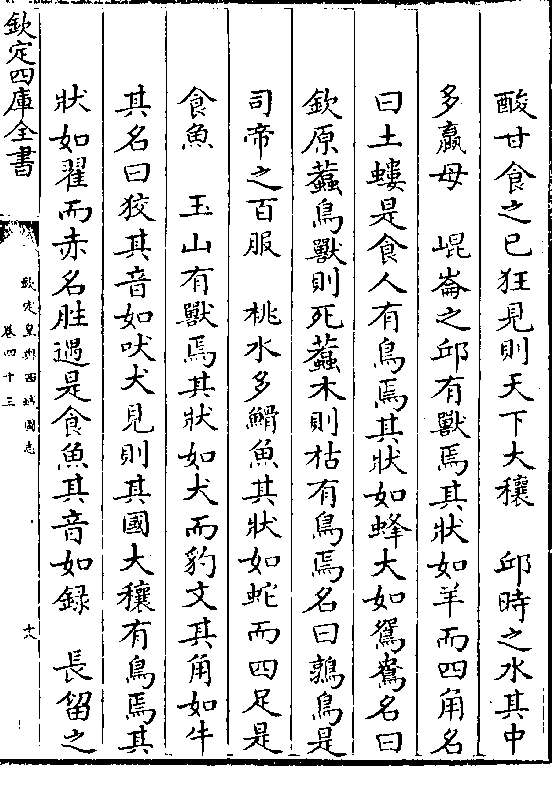 酸甘食之已狂見則天下大穰　邱時之水其中
多蠃母　崐崙之邱有獸焉其狀如羊而四角名
曰土螻是食人有鳥焉其狀如蜂大如鴛鴦名曰
欽原蠚鳥獸則死蠚木則枯有鳥焉名曰鶉鳥是
司帝之百服　桃水多䱻魚其狀如蛇而四足是
食魚　玉山有獸焉其狀如犬而豹文其角如牛
其名曰狡其音如吠犬見則其國大穰有鳥焉其
狀如翟而赤名胜遇是食魚其音如録　長留之
欽定四庫全書
欽定皇輿西域圖志
卷四十三
十八